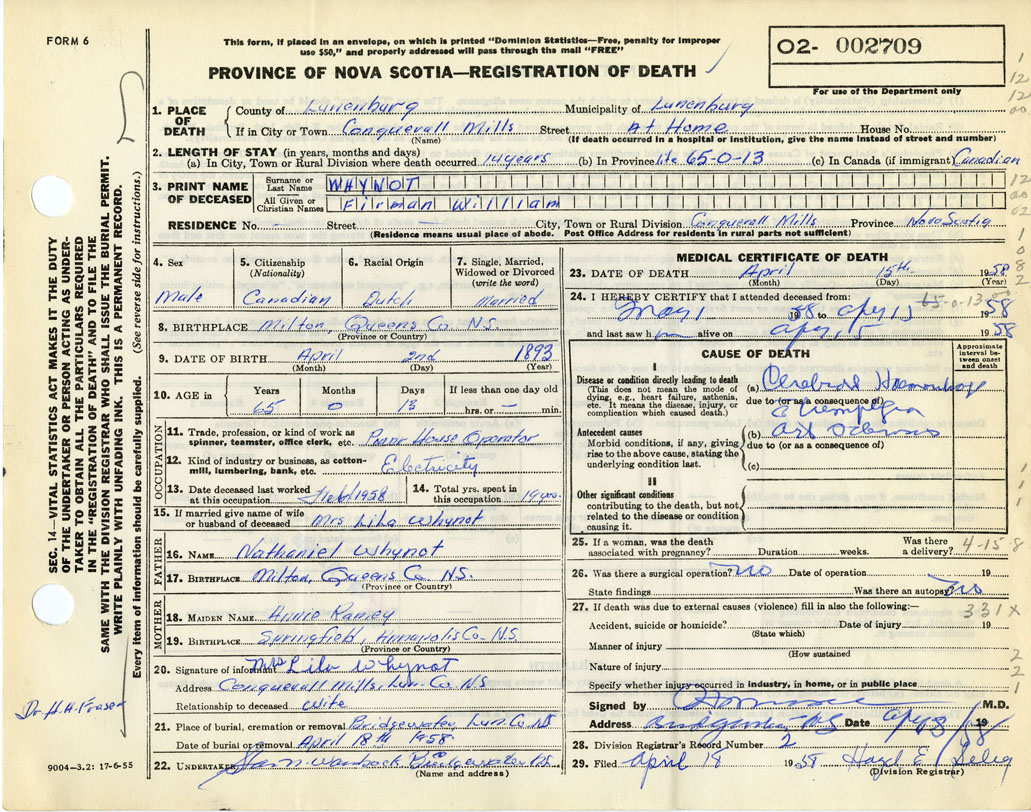 FORM 6
This form, if placed in an envelope, on which is printed "Dominion Statistics—Free, penalty for improper
use $50," and properly addressed will pass through the mail "FREE"
PROVINCE OF NOVA SCOTIA—REGISTRATION OF DEATH
02- 002709
For use of the Department only
1. PLACE OF DEATH County of Lunenburg Municipality of Lunenburg
If in City or Town Conquerall Mills Street At Home House No.
(Name) (If death occurred in a hospital or institution, give the name instead of street and number)
2. LENGTH OF STAY (in years, months and days)
(a) In City, Town or Rural Division where death occurred 14 years (b) In Province life 65-0-13 (c) In Canada (if immigrant) Canadian
3. PRINT NAME OF DECEASED Surname or Last Name WHYNOT
All Given or Christian Names Firman William
RESIDENCE No. — Street — City, Town or Rural Division Conquerall Mills Province Nova Scotia
(Residence means usual place of abode. Post Office Address for residents in rural parts not sufficient)
4. Sex Male
5. Citizenship (Nationality) Canadian
6. Racial Origin Dutch
7. Single, Married, Widowed or Divorced (write the word) Married
8. BIRTHPLACE Milton, Queens Co N.S.
(Province or Country)
9. DATE OF BIRTH April 2nd 1893
(Month) (Day) (Year)
10. AGE in Years Months Days If less than one day old
65 0 13 hrs. or — min.
OCCUPATION
11. Trade, profession, or kind of work as spinner, teamster, office clerk, etc. Power House Operator
12. Kind of industry or business, as cotton-mill, lumbering, bank, etc. Electricity
13. Date deceased last worked at this occupation Feb/1958
14. Total yrs. spent in this occupation 19 yrs.
15. If married give name of wife or husband of deceased Mrs Lila Whynot
FATHER
16. NAME Nathaniel Whynot
17. BIRTHPLACE Milton, Queens Co N.S.
(Province or Country)
MOTHER
18. MAIDEN NAME Annie Ramey
19. BIRTHPLACE Springfield, Annapolis Co. N.S
(Province or Country)
20. Signature of informant Mrs Lila Whynot
Address Conquerall Mills, Lun. Co. N.S
Relationship to deceased Wife
21. Place of burial, cremation or removal Bridgewater Lun. Co. N.S
Date of burial or removal April 18th 1958
22. UNDERTAKER Bridgewater N.S.
(Name and address)
MEDICAL CERTIFICATE OF DEATH
23. DATE OF DEATH April 15th 1958
(Month) (Day) (Year)
24. I HEREBY CERTIFY that I attended deceased from: 65-0-13
May 1 1958 to Apr 15 1958
and last saw h im alive on Apr 15 1958
CAUSE OF DEATH
Approximate interval between onset and death
I
Disease or condition directly leading to death
(This does not mean the mode of dying, e.g., heart failure, asthenia, etc. It means the disease, injury, or complication which caused death.)
(a) Cerebral Haemorrhage
due to (or as a consequence of)
Antecedent causes
Morbid conditions, if any, giving rise to the above cause, stating the underlying condition last.
(b)
due to (or as a consequence of)
(c)
II
Other significant conditions
contributing to the death, but not related to the disease or condition causing it.
25. If a woman, was the death associated with pregnancy? Duration weeks. Was there a delivery? 4-15-8
26. Was there a surgical operation? No Date of operation 19
State findings Was there an autopsy No
27. If death was due to external causes (violence) fill in also the following:— 331X
Accident, suicide or homicide? Date of injury 19
(State which)
Manner of injury
(How sustained
Nature of injury
Specify whether injury occurred in industry, in home, or in public place
Signed by M.D.
Address Bridgewater N.S Date 19
28. Division Registrar's Record Number 2
29. Filed April 18 1958 Hazel E
(Division Registrar)
SEC. 14—VITAL STATISTICS ACT MAKES IT THE DUTY
OF THE UNDERTAKER OR PERSON ACTING AS UNDER-
TAKER TO OBTAIN ALL THE PARTICULARS REQUIRED
IN THE "REGISTRATION OF DEATH" AND TO FILE THE
SAME WITH THE DIVISION REGISTRAR WHO SHALL ISSUE THE BURIAL PERMIT.
WRITE PLAINLY WITH UNFADING INK. THIS IS A PERMANENT RECORD.
Every item of information should be carefully supplied. (See reverse side for instructions.)
Dr. H. H. Fraser
9004-3.2: 17-6-55